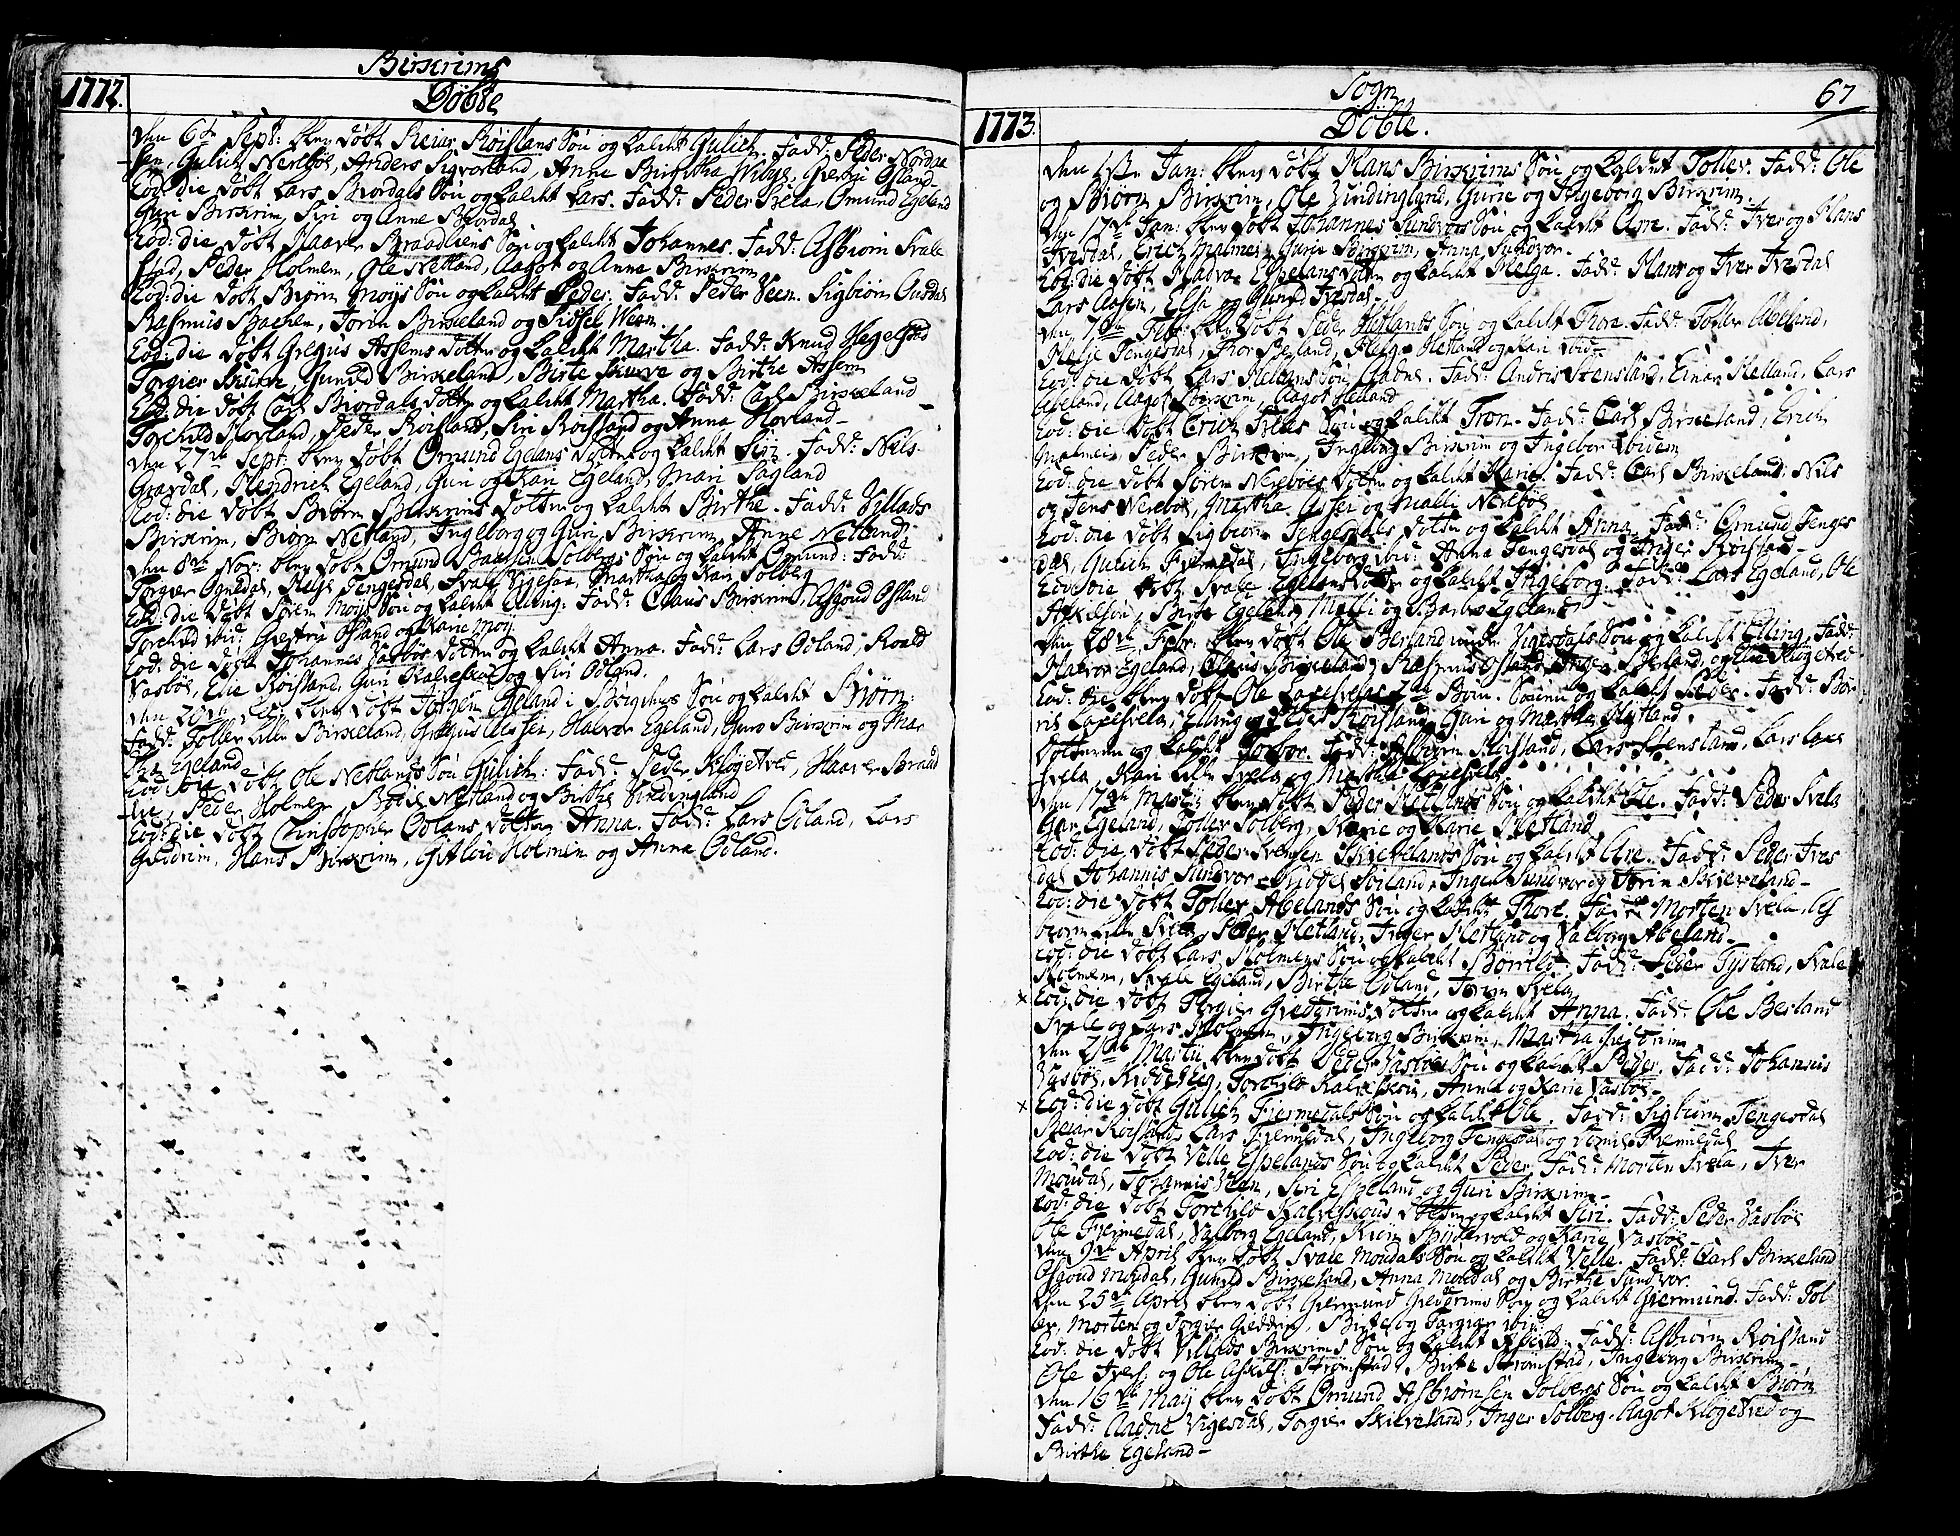 Birkrims
1772.
Döbte
Den 6te Sept: blev döbt Reiar Röislans Sön og kaldet Gulich. Fadd: Peder Nordre
Jan, Gulich Nereböe, Anders Sigvorland, Anne Birgitha
Eod: die döbt Lars Biordals Sön og kaldet Lars. Fadd: Peder Svela, Omund Egeland
Guri Birkrim, Siri og Anne Biordal
Eod: die döbt Haaver Braadliens Sön og kaldet Johannes. Fadd: Asbiörn Svale
stad, Peder Holmen, Ole Netland, Aagot og Anna Birkrim
Eod: die döbt Biörn Moys Sön og kaldet Peder. Fadd: Peder Veen. Sigbiörn Ousdal
Rasmus Bachen, Torin Birkeland og Sidsel Veen.
Eod: die döbt Gregus Assems Dotter og kaldet Martha. Fadd: Knud Hegelstad
Torgier Skurve, Gunild Birkeland, Birte Skurve og Birthe Assem
Eod: die döbt Carl Biordals Dotter og kaldet Martha. Fadd: Carl Birkeland
Torchild Hovland, Peder Röisland, Siri Röisland og Anna Hovland
Den 27de Sept: blev döbt Omund Egelans Dotter og kaldet Siri. Fadd: Nils
Gravdal, Hendrich Egeland, Guri og Kari Egeland, Mari Sagland
Eod: die döbt Biörn Birkrims Dotter og kaldet Birthe. Fadd: Villads
Birkrim, Biörn Netland, Ingeborg og Guri Birkrim, Anne Netland
Den 8de Nov: blev döbt Omund Solbergs Sön og kaldet Omund: Fadd:
Torgier Ognedal, Helje Tengesdal, Svale Vigesaa, Martha og Kari Solberg
Eod: die döbt Sven Moys Sön og kaldet Elling: Fadd: Claus Birkrim, Asgoud Ofland
Torchild ibid: Giertru Ofland og Karie Moy.
Eod: die döbt Johannes Vasböe Dotter og kaldet Anna. Fadd: Lars Odland, Roald
Vasböe, Elie Röisland, Guri Kalveskou og Siri Odland.
Den 20de blev döbt Jörgen Egeland i Sön og kaldet Biörn:
Fadd: Toller Lille Birkeland, Gregus Assen, Halvor Egeland, Guro Birkrim og Mar
tha Egeland
Eod: die döbt Ole Netlands Sön Gulich: Fadd: Peder Klögetved, Haaver Braad
lie, Peder Holmen, Bodil Netland og Birthe
Eod: die döbt Christopher Odlans Dotter Anna. Fadd: Lars Odland, Lars
Giedrim, Hans Birkrim, Holmen og Anna Odland.
Sogn
67
1773.
Döbte.
Den 1ste Jan: blev döbt Hans Birkrims Sön og kaldet Toller. Fadd: Ole
og Biörn Birkrim, Ole Gurie og Ingeborg Birkrim
Den 17de Jan: blev döbt Johannes Sundvors Sön og kaldet Are. Fadd: Iver og Hans
Ivesdal, Erich Malmei, Gurie Birkrim, Anna Sundvor
Eod: die döbt Espelans Dotter og kaldet Helga. Fadd: Hans og Iver Ivesdal
Lars Aasen, Elsa og Gunild Ivesdal
Den 7de Feb: blev döbt Peder Hetlands Sön og kaldet Thore. Fadd: Toller Abeland,
Helje Tengesdal, Thor Hetland og Kari ibid:
Eod: die döbt Lars Hellans Sön Aadne. Fadd: Andris Stensland, Einar Helland, Lars
Abeland, Aagot Birkrim, Aagot Helland
Eod: die döbt Erich Sön og kaldet Tron. Fadd: Carl Birkeland, Erich
Malmei, Peder Birkrim, Birkrim og Ingebor ibidem
Eod: die döbt Sören Nereböes Dotter og kaldet Karie. Fadd: Carl Birkeland: Nils
og Jens Nereböe, Martha og Malli Nereböe
Eod: die döbt Sigbiörn Tengesdals Dotter og kaldet Anna. Fadd: Omund Tenges
dal, Gulich Fiermedal, Ingeborg ibid: Anna Tengesdal og Inger Röisland
Eod: die döbt Svale Egelans Dotter og kaldet Ingeborg. Fadd: Lars Egeland, Ole
Birte Egeland, Malli og Egeland
Den 28de Febr: blev döbt Ole Berland Vigesdals Sön og kaldet Elling. Fadd:
Halvor Egeland, Claus Birkeland, Rasmus Ofland, Inger Berland, og Klögetved
Eod: die blev döbt Ole Laxesvelas Börn. Sönnen og kaldet Peder. Fadd: Bör
rild Laxesvela, Elling og Peder Röisland, Guri og Martha Röisland.
Dotteren og kaldet Torbor. Fadd: Asbiörn Röisland, Lars Stensland, Lars Laxe
svela, Kari Lille Svela og Martha Laxesvela
Den 17de Martij blev döbt Peder Hetlands Sön og kaldet Ole. Fadd: Peder Svela
Egeland, Toller Solberg, Karie og Karie Hetland
Eod: die döbt Peder Svensen Skievelands Sön og kaldet Are. Fadd: Peder Ives
dal, Johannis Sundvor, Inger Sundvor og Torin Skieveland
Eod: die döbt Toller Abelands Sön og kaldet Thore. Fadd: Morten Svela, As
biörn Lille Svela, Peder Hetland, Inger Hetland og Valborg Abeland
Eod: die döbt Lars Holmens Sön og kaldet Börrild. Fadd: Peder Tysland, Svale
Holmen, Svale Egeland, Birthe Odland, Torin Svela
x Eod: die döbt Torgier Giedrims Dotter og kaldet Anna. Fadd: Ole Berland
Svale og Lars Holmen, Ingeborg Birkrim, Martha Giedrim
Den Martii blev döbt Peder Vasböes Sön og kaldet Peder. Fadd: Johannis
Vasböe, Torchild Kalveskou, Anna og Karie Vasböe
x Eod: die döbt Gulich Fiermedals Sön og kaldet Ole. Fadd: Sigbiörn Tengesdal
Reiar Röisland, Lars Fiermedal, Ingeborg Tengesdal og Fiermedal
Eod: die döbt Velle Espelands Sön og kaldet Peder. Fadd: Morten Svela, Iver
Moudal, Johannis Veen, Siri Espeland og Guri Birkrim
Eod: die döbt Torchild Kalveskous Dotter og kaldet Siri. Fadd: Peder Vasböe
Ole Fiermedal, Valborg Egeland, og Karie Vasböe
Den 9de April blev döbt Svale Moudals Sön og kaldet Velle. Fadd: Carl Birkeland
Osgoud Moudal, Gunild Birkeland, Anna Moudal og Birthe Sundvor.
Den 25de April blev döbt Giermund Giedrims Sön og kaldet Giermund. Fadd: Tol
ler, Morten og Torgier Giedrim, Birthe og ibid:
Eod: die döbt Villads Birkrims Sön og kaldet Fadd: Asbiörn Röisland
Ole og Ole Strömstad, Birte Strömstad, Ingeborg Birkrim
Den 16de Maij blev döbt Omund Asbiörnsen Solbergs Sön og kaldet Biörn
Fadd: Aadne Vigesdal, Torgier Skieveland, Inger Solberg, Aagot Klögetved og
Birthe Egeland